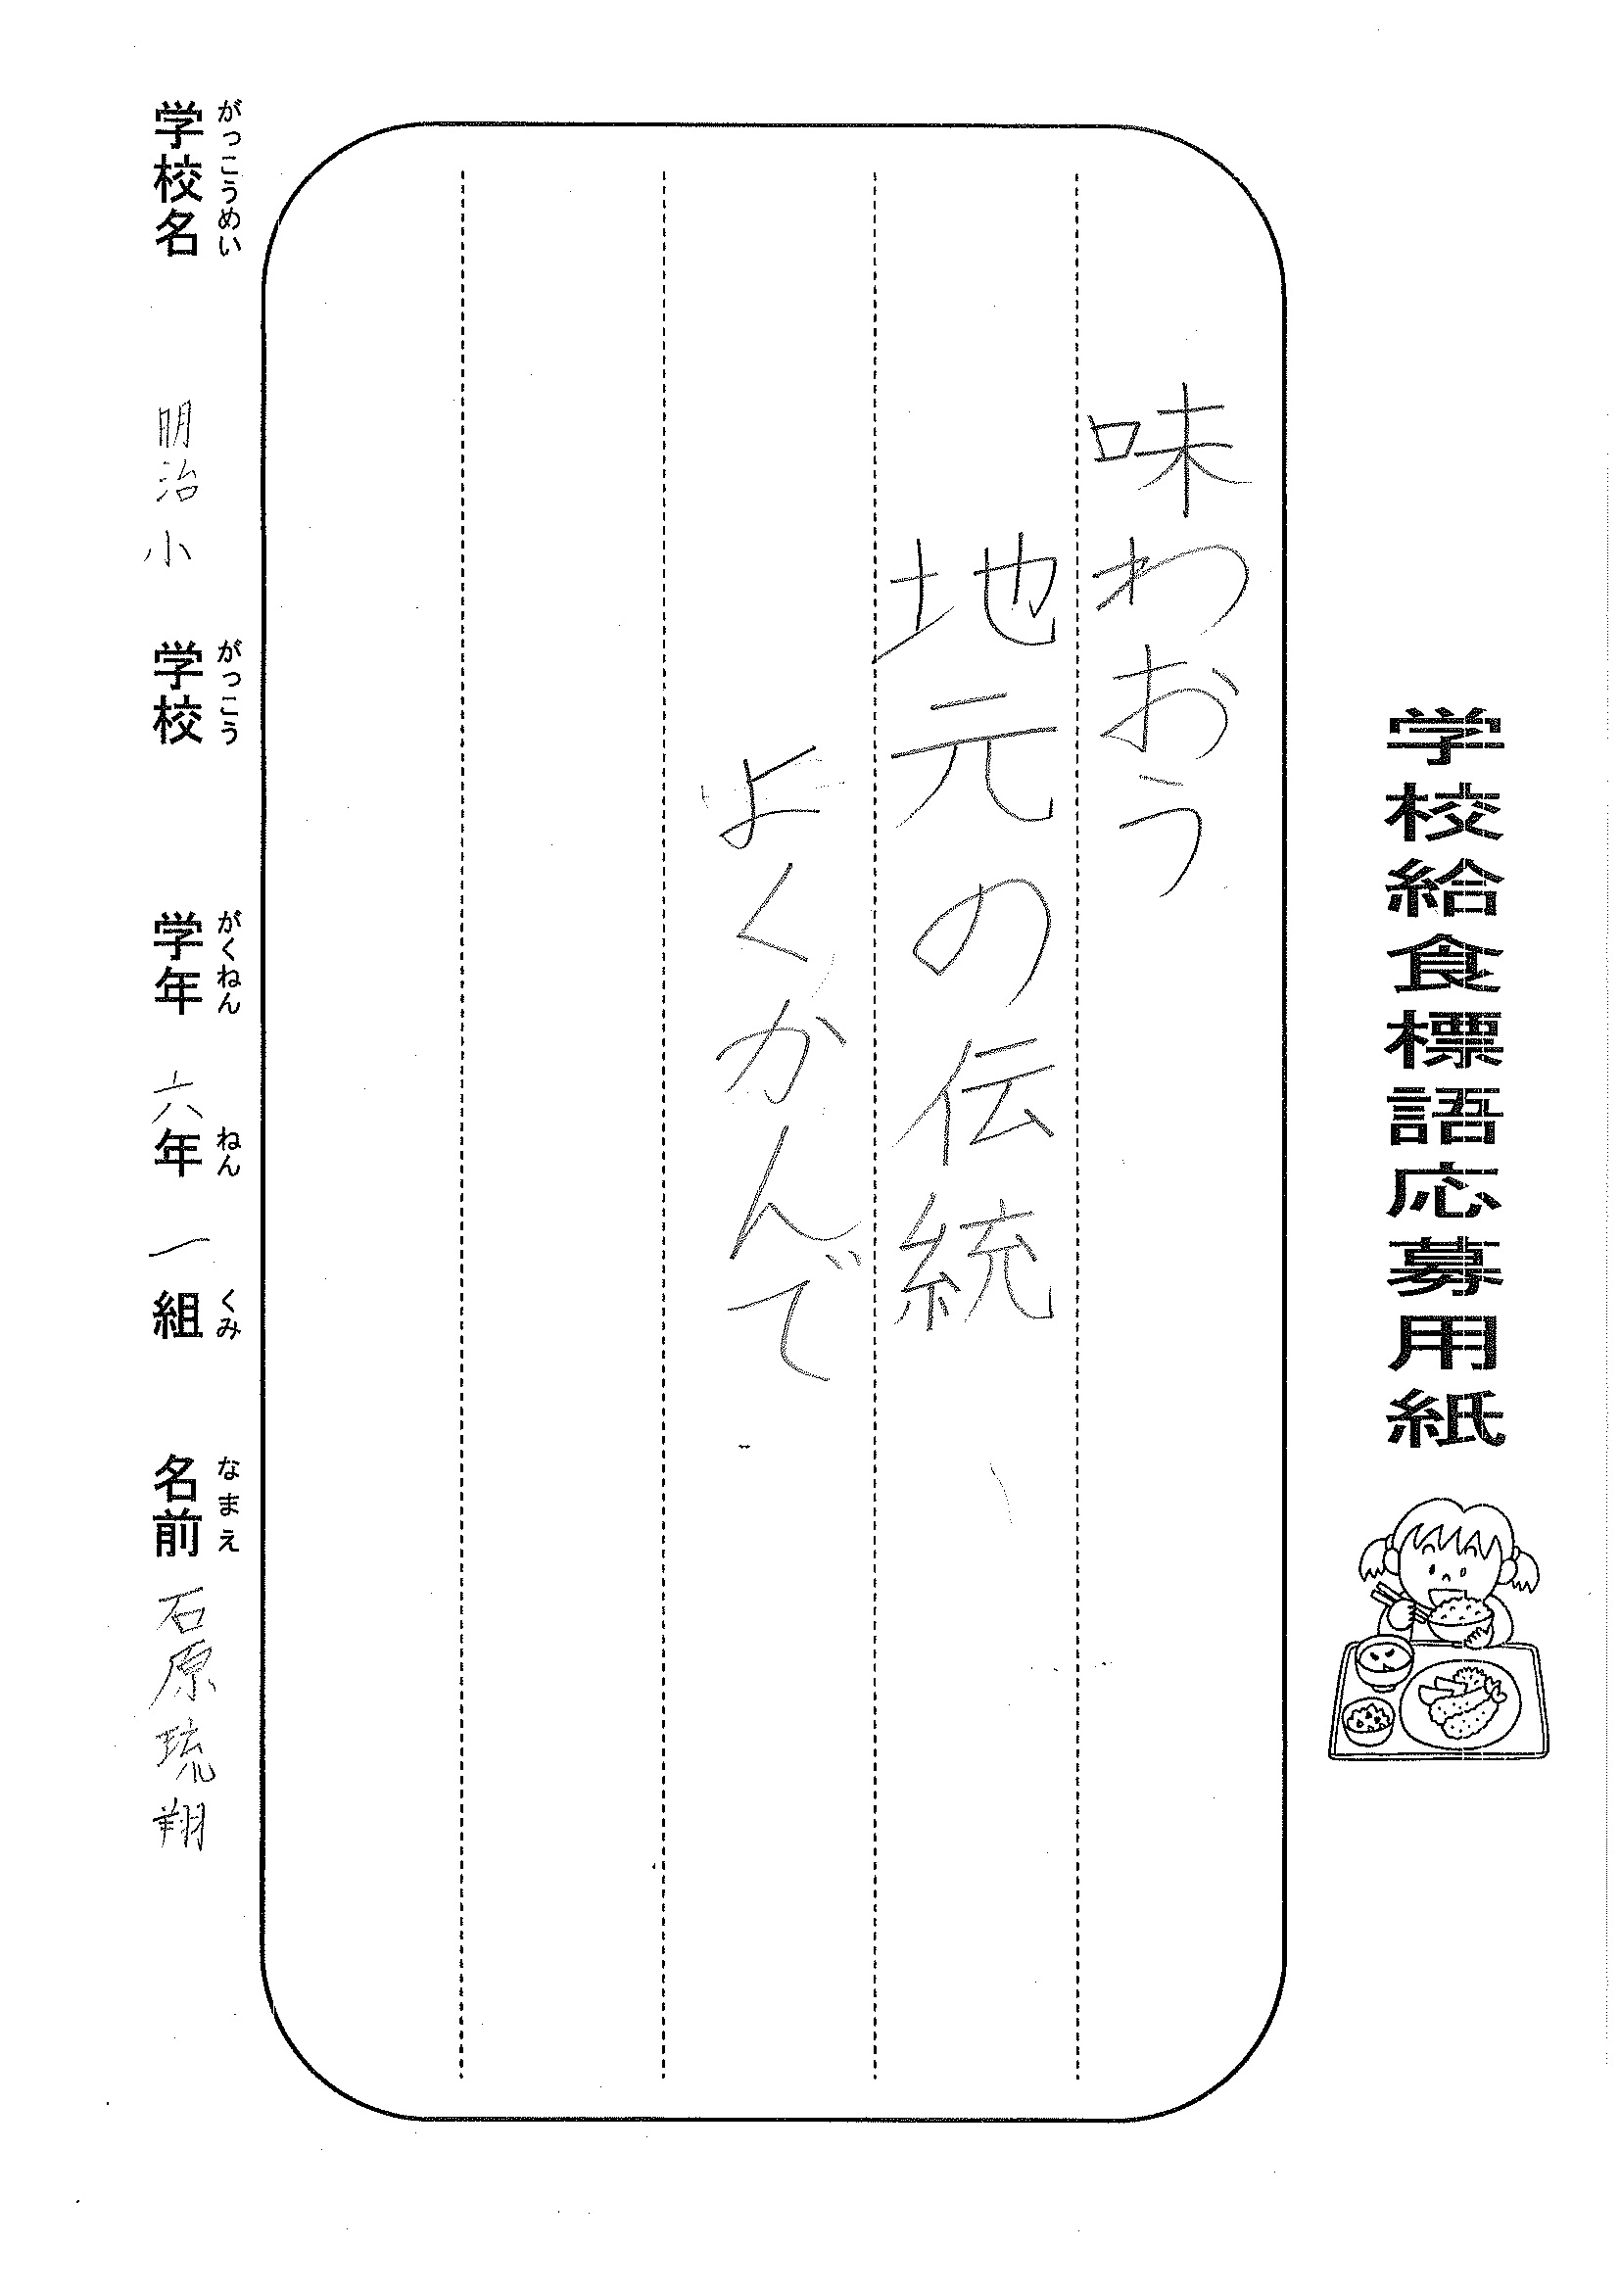 学校給食標語応募用紙
味わおう
地元の伝統
よくかんで
がっこうめい がっこう がくねん ねん くみ なまえ
学校名 明治小 学校 学年 六年 一組 名前 石原琉翔